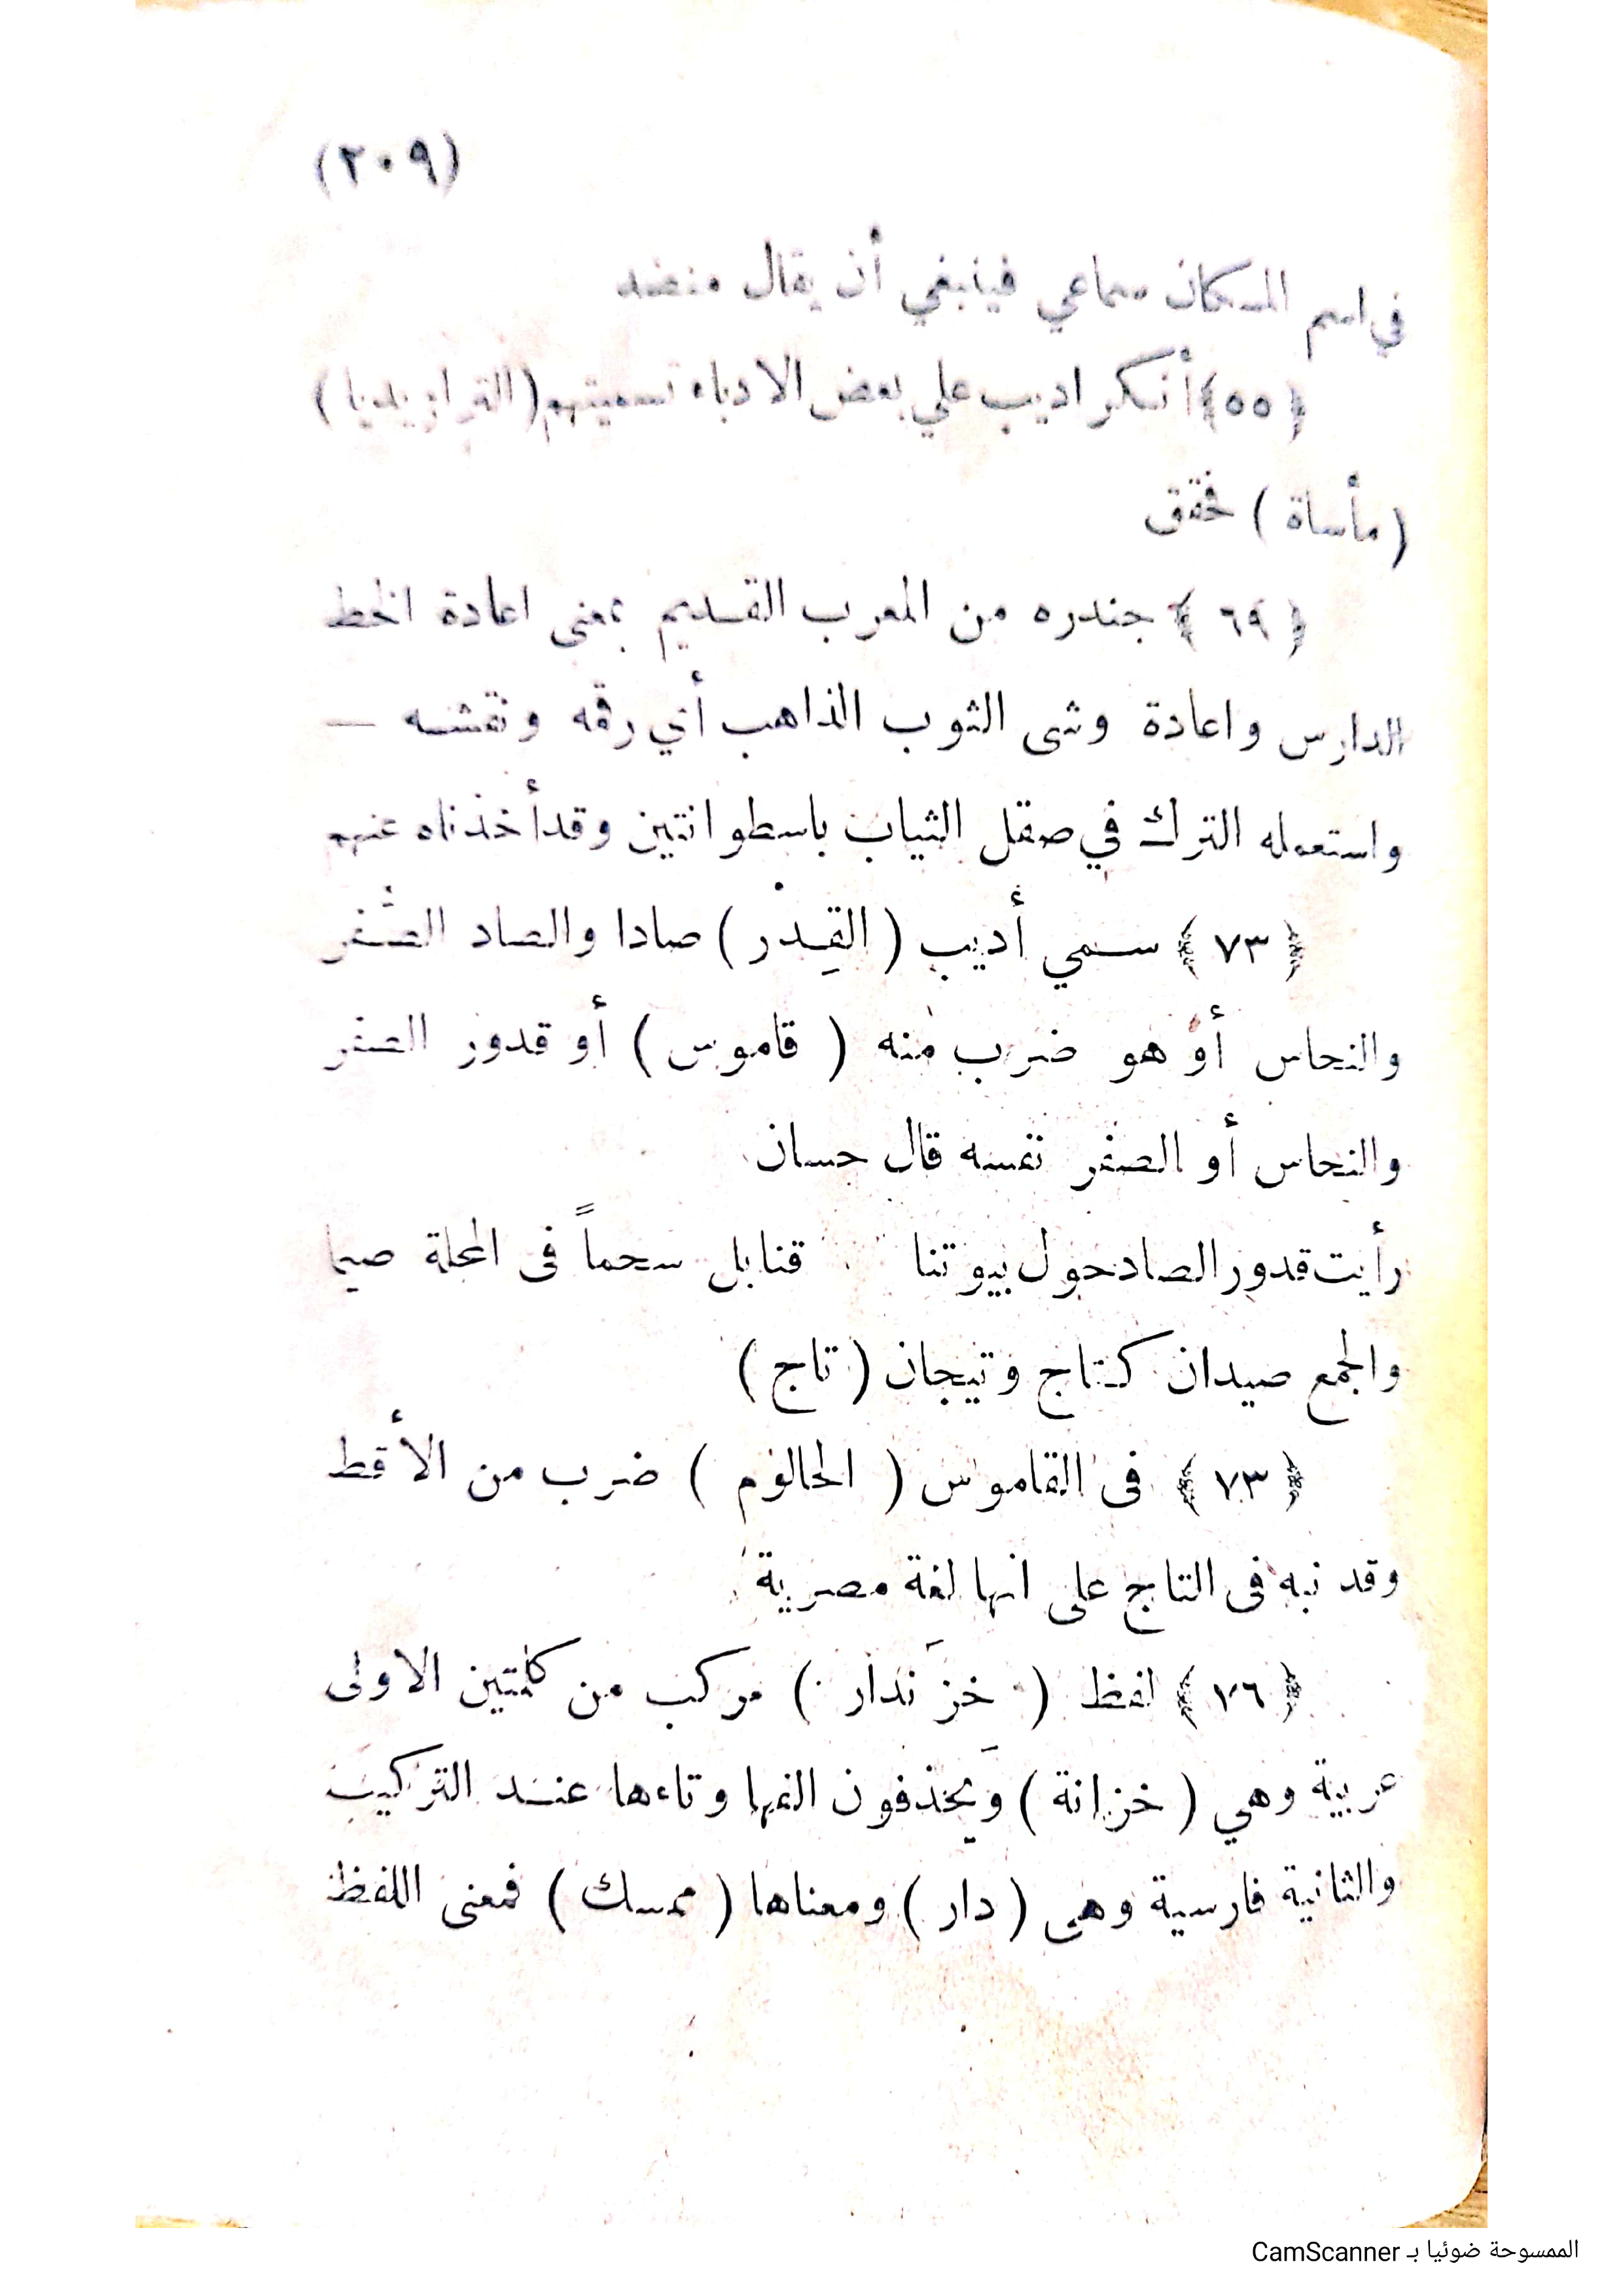 (٢٠٩)
في اسم المكان سماعي فينبغي أن يقال منضد
﴿٥٥﴾ أنكر اديب علي بعض الادباء تسميتهم (الترازيديا)
(مأساة) فحقق
﴿٦٩﴾ جندره من المعرب القديم بمعنى اعادة الخط
الدارس واعادة وشى الثوب الذاهب أي رقه ونقشه —
واستعمله الترك في صقل الثياب باسطوانتين وقد أخذناه عنهم
﴿٧٣﴾ سمي أديب (القِدْر) صادا والصاد الصُفر
والنحاس أو هو ضرب منه (قاموس) أو قدور الصفر
والنحاس أو الصفر نفسه قال حسان
رأيت قدور الصاد حول بيوتنا قنابل سحماً فى المحلة صيما
والجمع صيدان كتاج وتيجان (تاج)
﴿٧٣﴾ فى القاموس (الحالوم) ضرب من الأقط
وقد نبه فى التاج على انها لغة مصرية
﴿٧٦﴾ لفظ (خزَندار) مركب من كلمتين الاولى
عربية وهي (خزانة) وَيحذفون الفها وتاءها عند التركيب
والثانية فارسية وهى (دار) ومعناها (ممسك) فمعنى اللفظ
الممسوحة ضوئيا بـ CamScanner